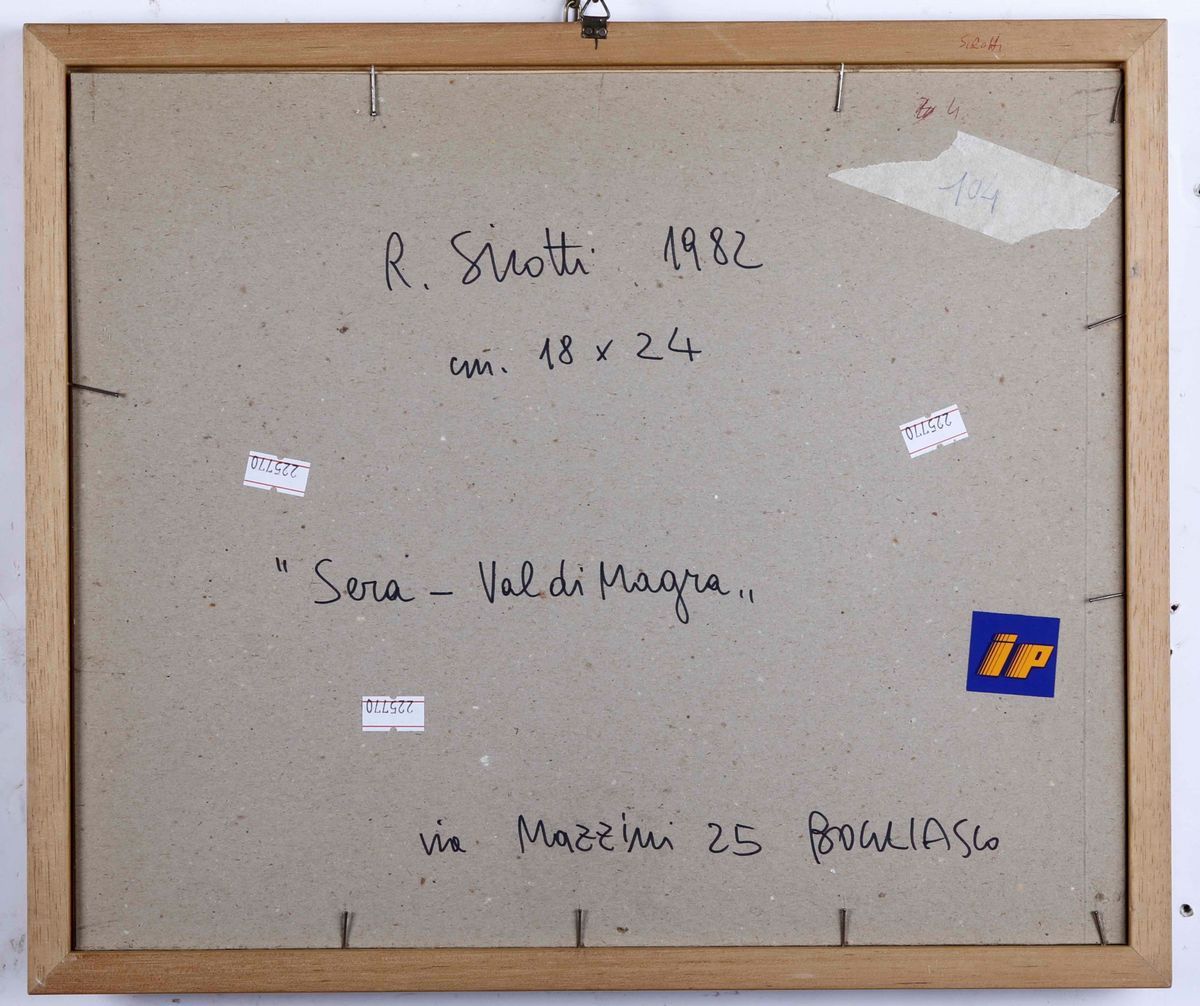 Sirotti
4.
104
R. Sirotti 1982
cm. 18 x 24
225770
225770
"Sera – Val di Magra"
ip
225770
via Mazzini 25 BOGLIASCO